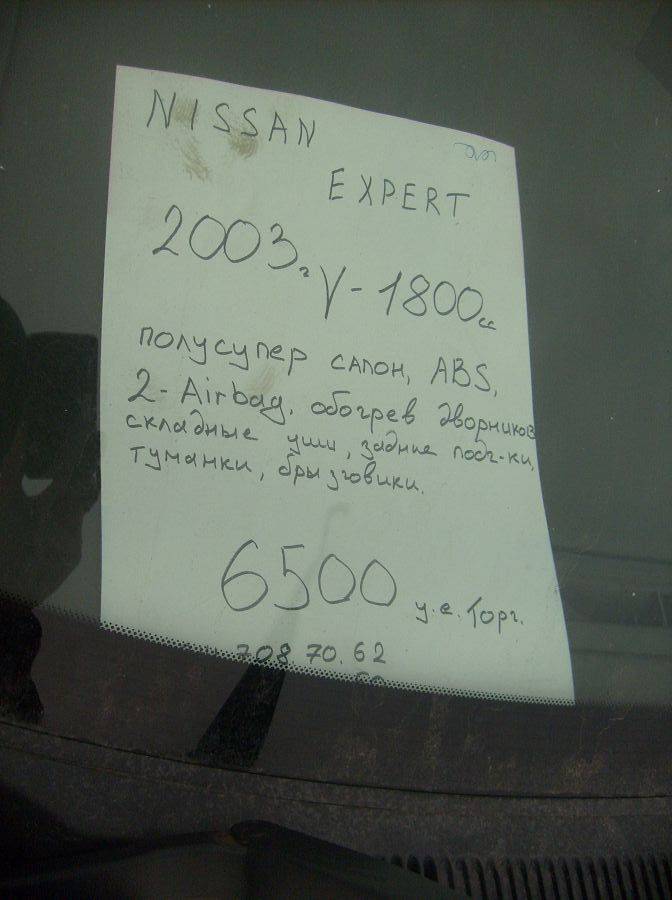 NISSAN
EXPERT
2003г V-1800cc
полусупер салон, ABS,
2-Airbag, обогрев дворников
складные уши, задние подг-ки,
туманки, брызговики.
6500 у.е. Торг.
708 70.62